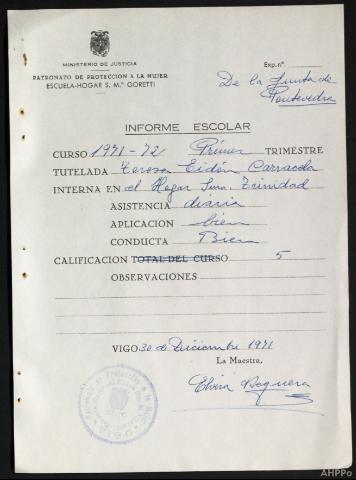 MINISTERIO DE JUSTICIA
PATRONATO DE PROTECCIÓN A LA MUJER
ESCUELA-HOGAR S. M.ª GORETTI
Exp. n.º
De la Junta de
Pontevedra
INFORME ESCOLAR
CURSO 1971-72 Primer TRIMESTRE
TUTELADA Teresa Eidón
INTERNA EN el Hogar Sma. Trinidad
ASISTENCIA diaria
APLICACION bien
CONDUCTA Bien
CALIFICACION TOTAL DEL CURSO 5
OBSERVACIONES
VIGO 30 de Diciembre 1971
La Maestra,
Elvira
AHPPo